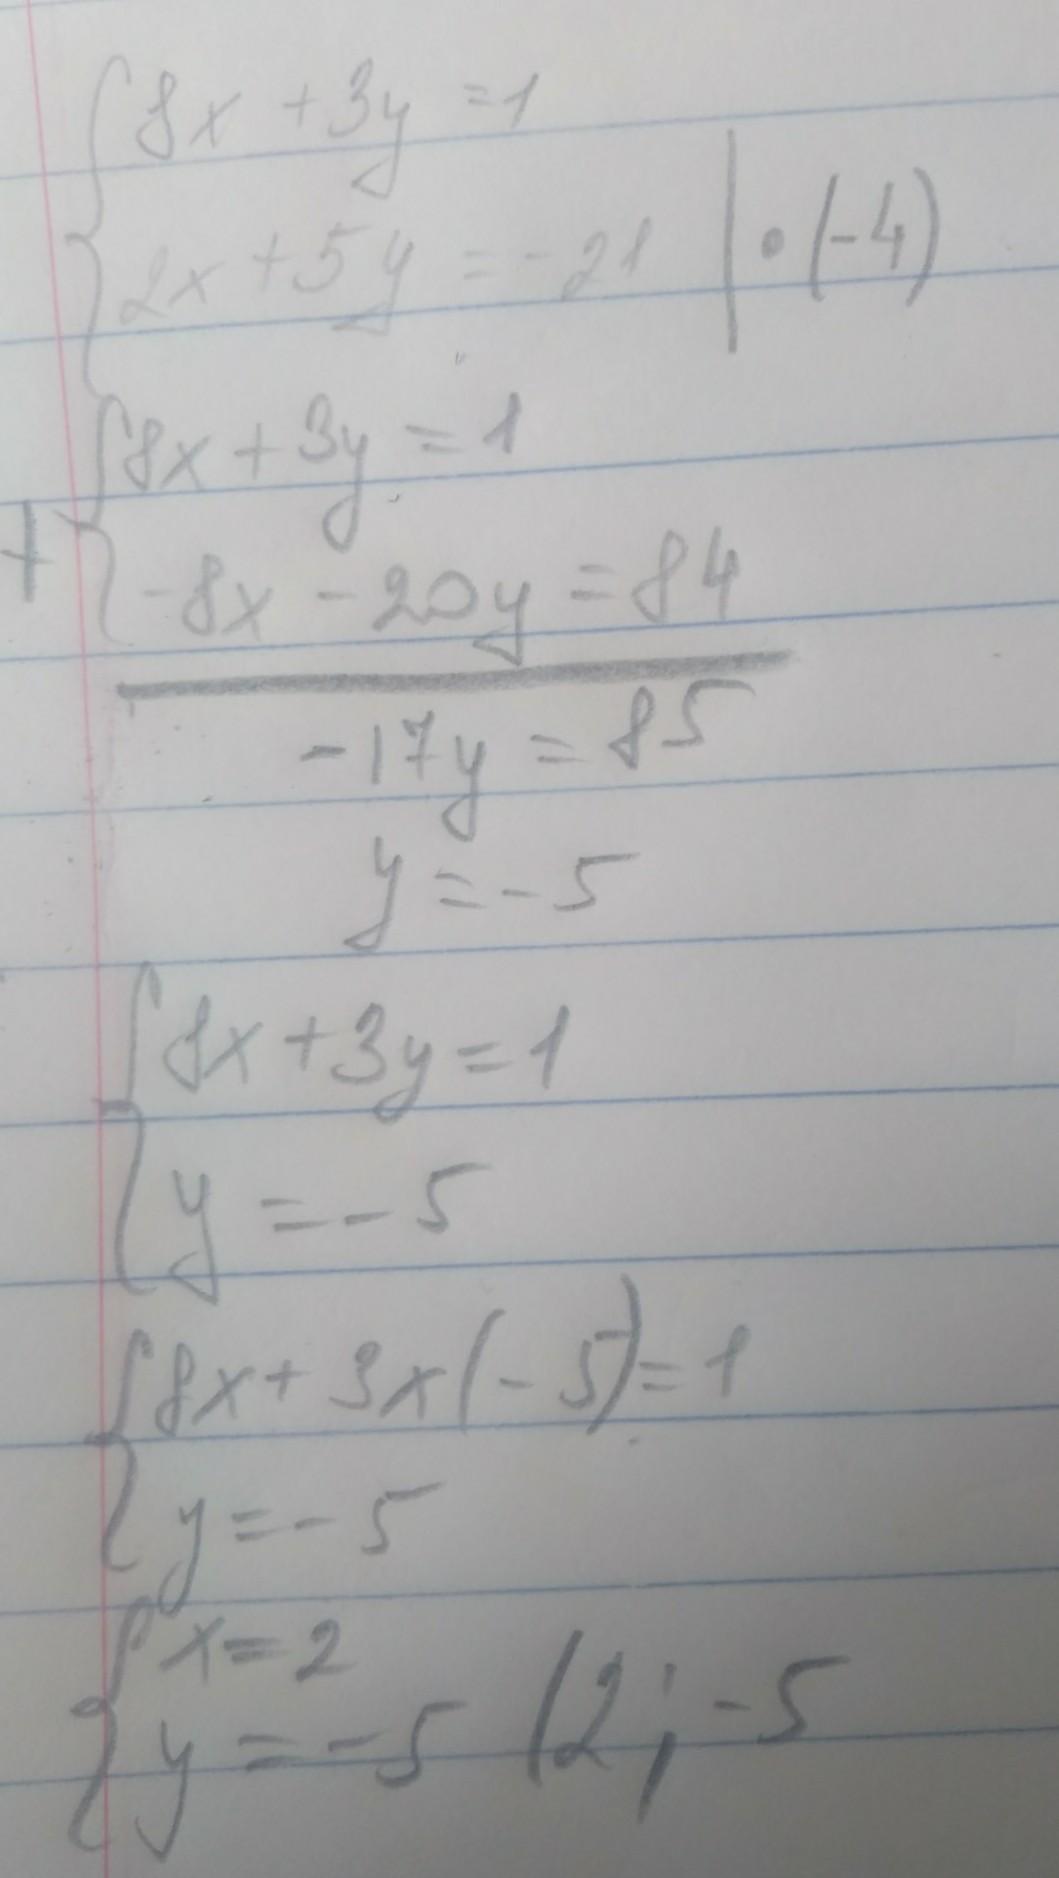 8x + 3y = 1
2x + 5y = -21 | • (-4)
8x + 3y = 1
+ -8x - 20y = 84
-17y = 85
y = -5
8x + 3y = 1
y = -5
8x + 3x(-5) = 1
y = -5
x = 2
y = -5 (2; -5